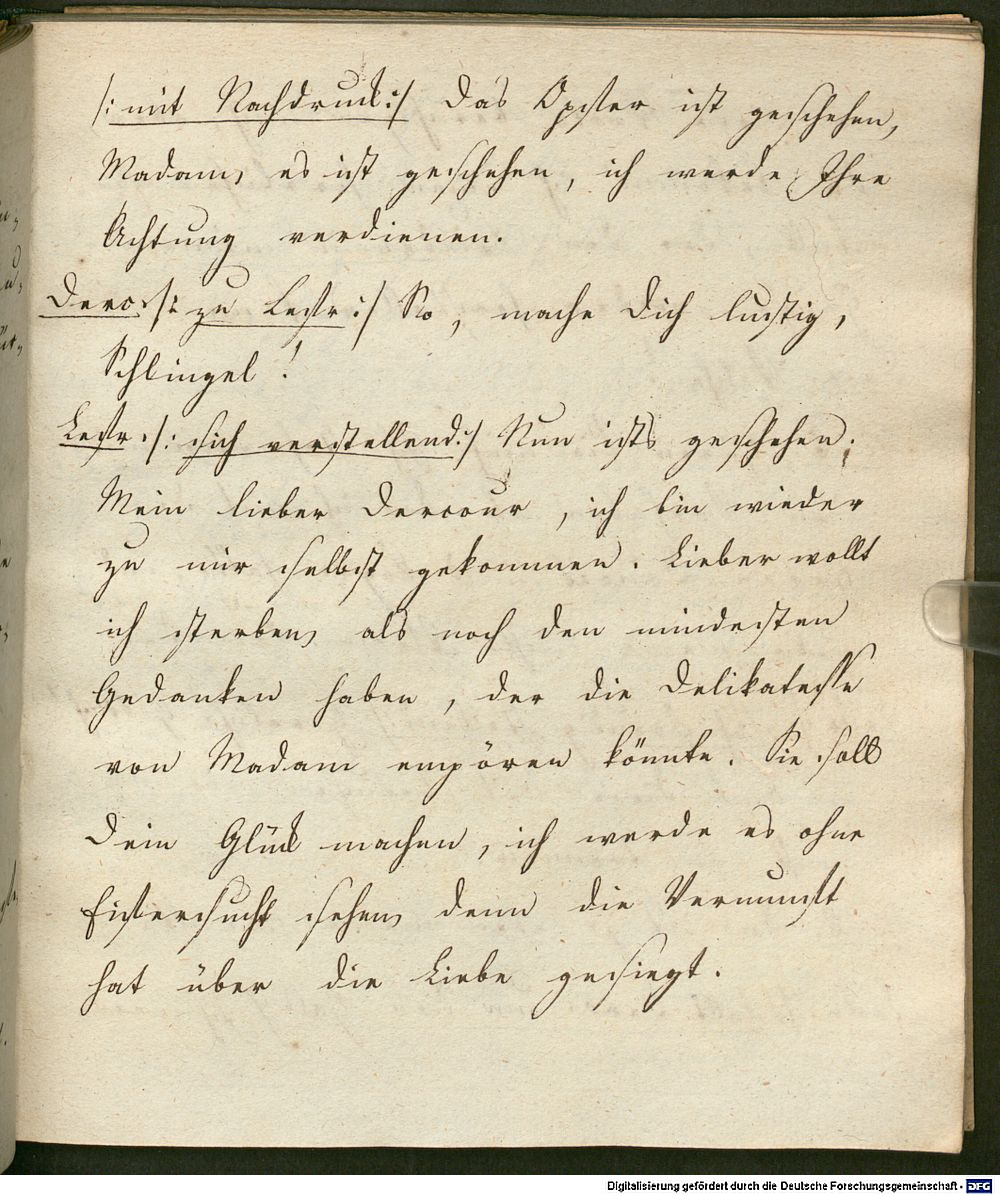 /: mit Nachdruck :/ Das Opfer ist geschehen,
Madam, es ist geschehen, ich werde Ihre
Achtung verdienen.
Derv. /: zu Lefr :/ So, mache Dich lustig,
Schlingel!
Lefr. /: sich verstellend :/ Nun ists geschehen.
Mein lieber Dervour, ich bin wieder
zu mir selbst gekommen. Lieber wollt
ich sterben, als noch den mindesten
Gedanken haben, der die Delikatesse
von Madam empören könnte. Sie soll
Dein Glück machen, ich werde es ohne
Eifersucht sehen, denn die Vernunft
hat über die Liebe gesiegt.
Digitalisierung gefördert durch die Deutsche Forschungsgemeinschaft - DFG